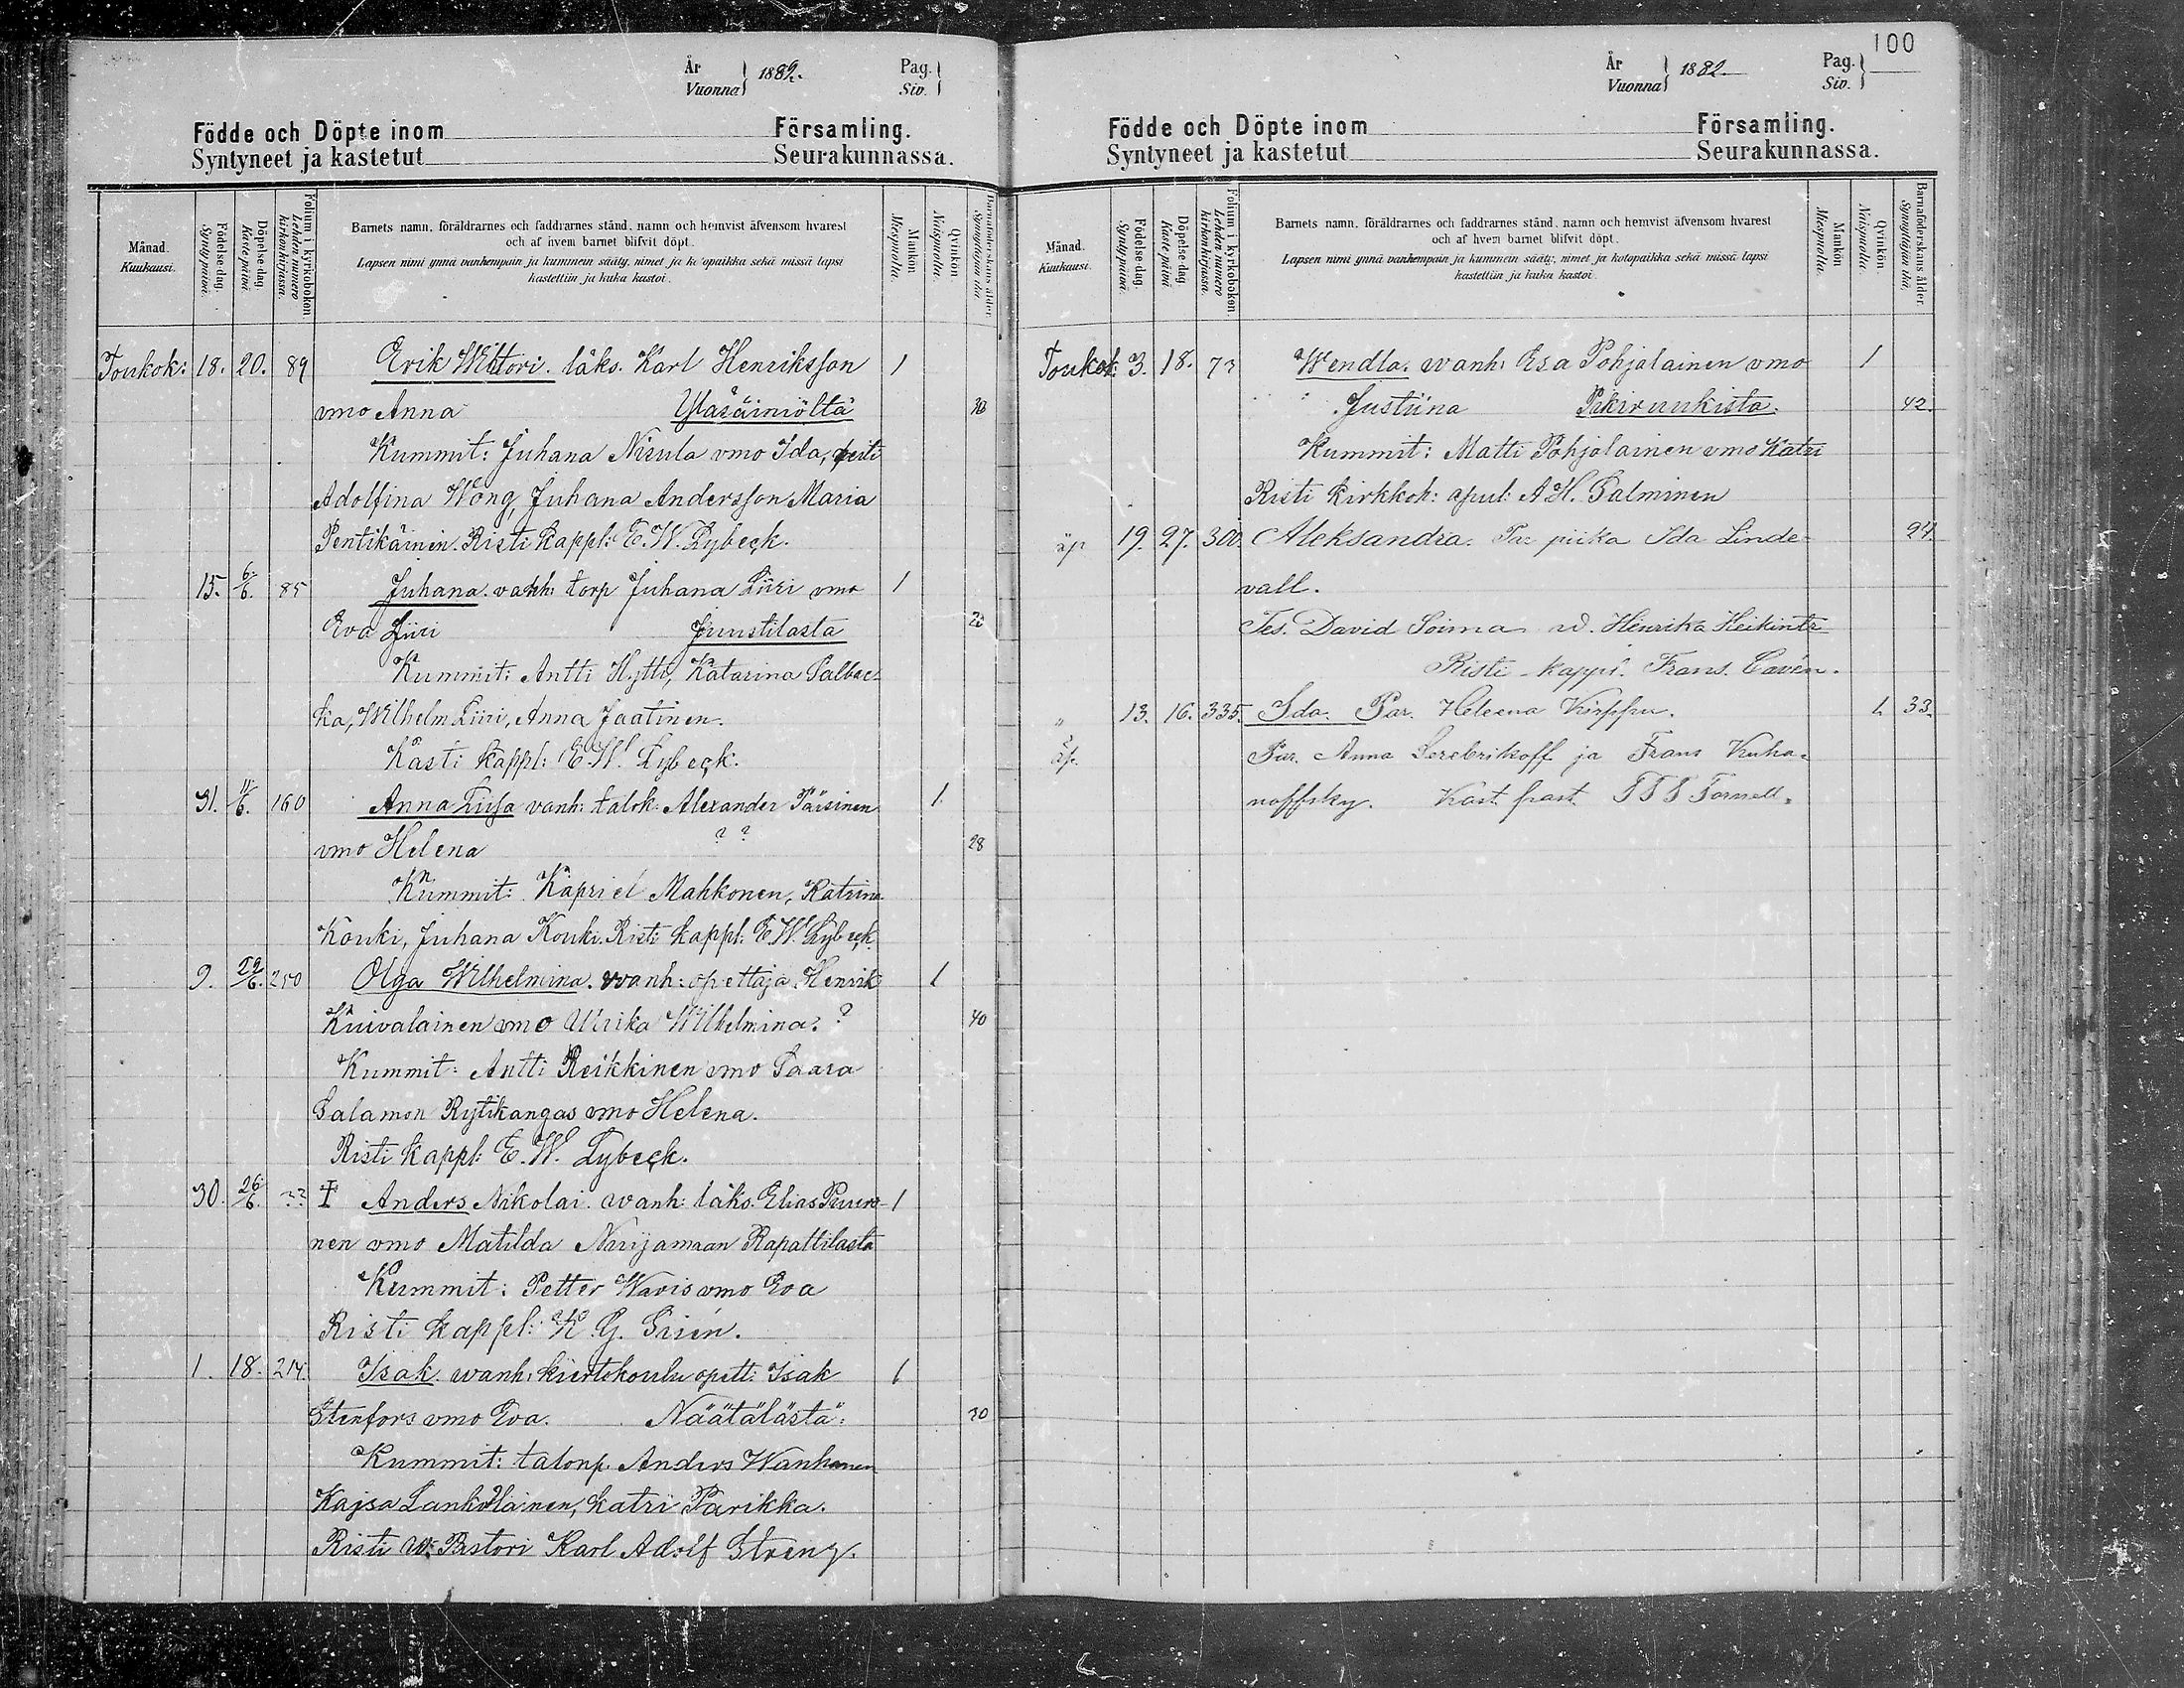 År
Vuonna 1882.
Pag.
Siv.
Födde och Döpte inom Församling.
Syntyneet ja kastetut Seurakunnassa.
Månad.
Kuukausi.
Födelse-dag.
Syntypäivä.
Döpelse-dag.
Kastepäivä.
Folium i kyrkoboken.
Lehden numero kirkonkirjassa.
Barnets namn, föräldrarnes och faddrarnes stånd, namn och hemvist äfvensom hvarest
och af hvem barnet blifvit döpt.
Lapsen nimi ynnä vanhempain ja kummein sääty, nimet ja kotopaikka sekä missä lapsi
kastettiin ja kuka kastoi.
Mankön.
Miespuolia.
Qvinkön.
Naispuolia.
Barnaföderskans ålder.
Synnyttäjän ikä.
Toukok: 18. 20. 89 Erik Wihtori. läks. Karl Henriksson 1
vmo Anna Yläsäiniöltä
Kummit: Juhana Nisula vmo Ida,
Adolfina Wong, Juhana Andersson Maria
Pentikäinen. Risti kappl: E. W. Lybeck.
15. 6/6. 85 Juhana. vanh: torp Juhana Liiri vmo 1
Eva Liiri Juustilasta
Kummit: Antti Hytti, Katarina
ka, Wilhelm Liiri, Anna Jaatinen.
Kasti kappl: E. W. Lybeck.
31. 11/6. 160 Anna Liisa vanh: talok: Alexander Täisinen 1.
vmo Helena ? ? 28
Kummit: Kapriel Mahkonen, Katrina
Kouki, Juhana Kouki. Risti kappl: E. W. Lybeck.
9. 29/6. 250 Olga Wilhelmina. wanh: opettaja Henrik 1
Kuivalainen vmo Ulrika Wilhelmina. ? 40
Kummit: Antti Reikkinen vmo Saara
Salamon Rytikangas vmo Helena.
Risti kappl: E. W. Lybeck.
30. 26/6. ?? Anders Nikolai. wanh: läks. Elias 1
nen vmo Matilda Nuijamaan Rapattilasta
Kummit: Petter Waris vmo Eva
Risti kappl: K. G. Sirén.
1. 18. 214. Isak. wanh: kiertokoulu opett: Isak 1
Stenfors vmo Eva. Näätälästä: 30
Kummit: talonp. Anders Wanhanen
Kajsa Lankolainen, katri Parikka.
Risti w: Pastori Karl Adolf Streng.
100
År
Vuonna 1882.
Pag.
Siv.
Födde och Döpte inom Församling.
Syntyneet ja kastetut Seurakunnassa.
Månad.
Kuukausi.
Födelse-dag.
Syntypäivä.
Döpelse-dag.
Kastepäivä.
Folium i kyrkoboken.
Lehden numero kirkonkirjassa.
Barnets namn, föräldrarnes och faddrarnes stånd, namn och hemvist äfvensom hvarest
och af hvem barnet blifvit döpt.
Lapsen nimi ynnä vanhempain ja kummein sääty, nimet ja kotopaikka sekä missä lapsi
kastettiin ja kuka kastoi.
Mankön
Miespuolia.
Qvinkön.
Naispuolia.
Barnaföderskans ålder.
Synnyttäjän ikä.
Toukok: 3. 18. 73 Wendla. wanh: Esa Pohjalainen vmo 1
Justiina 42.
Kummit: Matti Pohjolainen vmo Katri
Risti kirkkoh: apul: A H. Palminen
äp 19. 27. 300. Aleksandra. Par piika Ida Linde- 24.
vall.
Tes. David Soima w. Henrika Heikintr
Risti kappl. Frans. Cavén.
" 13. 16. 335. Ida. Par. Heleena Kirppu. 1. 33.
äp. Par. Anna Serebrikoff ja Frans Kuha-
noffsky. Kast.